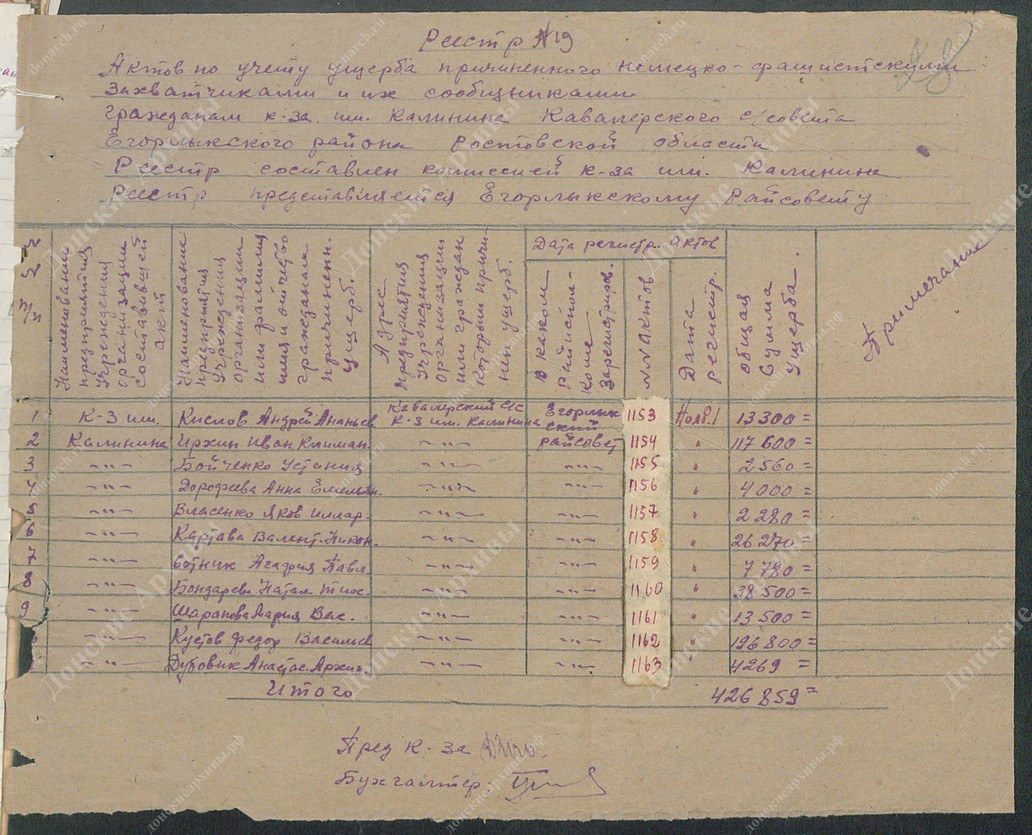 Реестр №19
Актов по учету ущерба причиненного немецко-фашистскими
захватчиками и их сообщниками
гражданам к-за им. Калинина Кавалерского с/совета
Егорлыкского района Ростовской области
Реестр составлен комиссией к-за им. Калинина
Реестр представляется Егорлыкскому Райсовету
№№ п/п
Наименование предприятия учреждения организации составившей акт
Наименование предприятия учреждения организации или фамилия имя и отчество гражданам причиненн. ущерб.
Адрес предприятия учреждения организации или граждан которым причинен ущерб.
Дата регистр. актов
В каком райисполкоме зарегистриров.
№№ актов
Дата регистр.
Общая сумма ущерба.
Примечание
1 К-з им. Кислов Андрей Ананьев Кавалерский с/с к-з им. Калинина Егорлыкский 1153 Нояб.1 13300=
2 Калинина Ирхин Иван Климан. -"- райсовет 1154 " 117600=
3 -"- Бойченко Устиния -"- -"- 1155 " 2560=
4 -"- Дорофеева Анна Емельян. -"- -"- 1156 " 4000=
5 -"- Власенко Яков Иллар. -"- -"- 1157 " 2280=
6 -"- Картава Валент. Никон. -"- -"- 1158 " 26270=
7 -"- Сотник Агафия Павл. -"- -"- 1159 " 7780=
8 -"- Бондарева Натал. Тимос. -"- -"- 1160 " 38500=
9 -"- Шарапова Мария Вас. -"- -"- 1161 " 13500=
-"- Кустов Федор Васильев -"- -"- 1162 " 196800=
-"- Дубовик Анастас. Архип. -"- -"- 1163 " 4269=
Итого 426859=
Пред к-за
Бухгалтер:
Донские Архивы
donarch.ru
донскиеархивы.рф